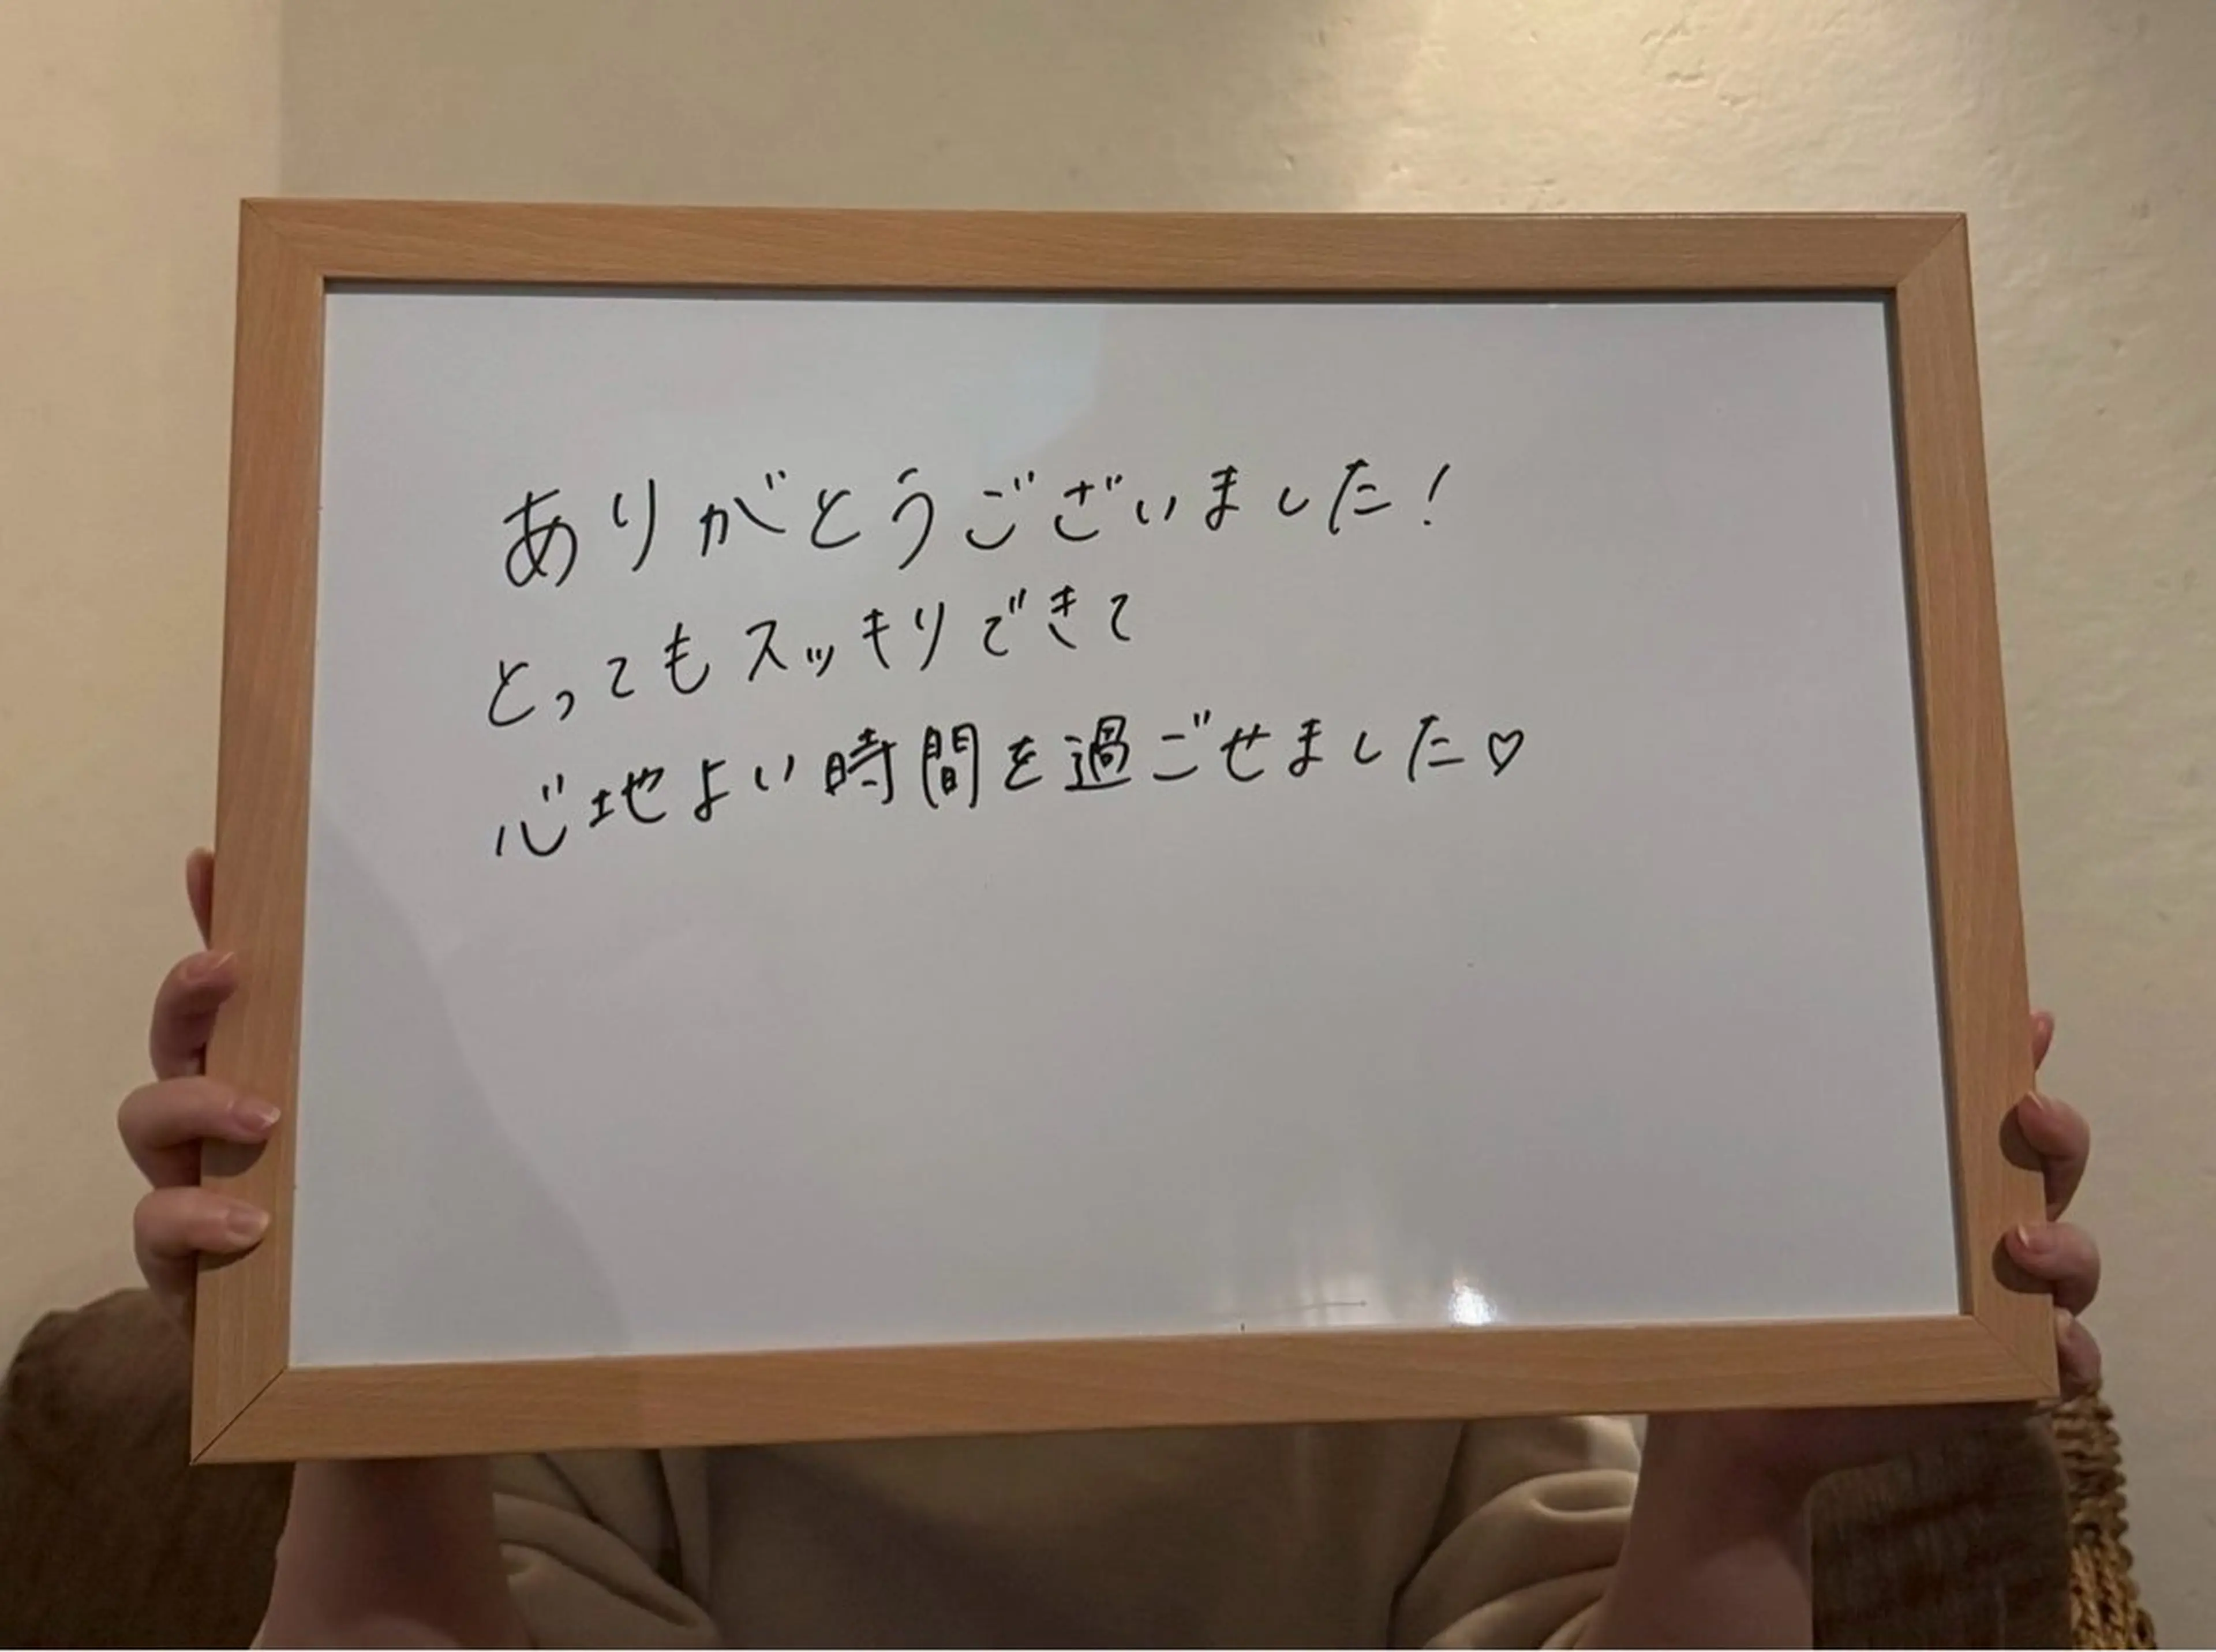 ありがとうございました！
とってもスッキリできて
心地よい時間を過ごせました♡